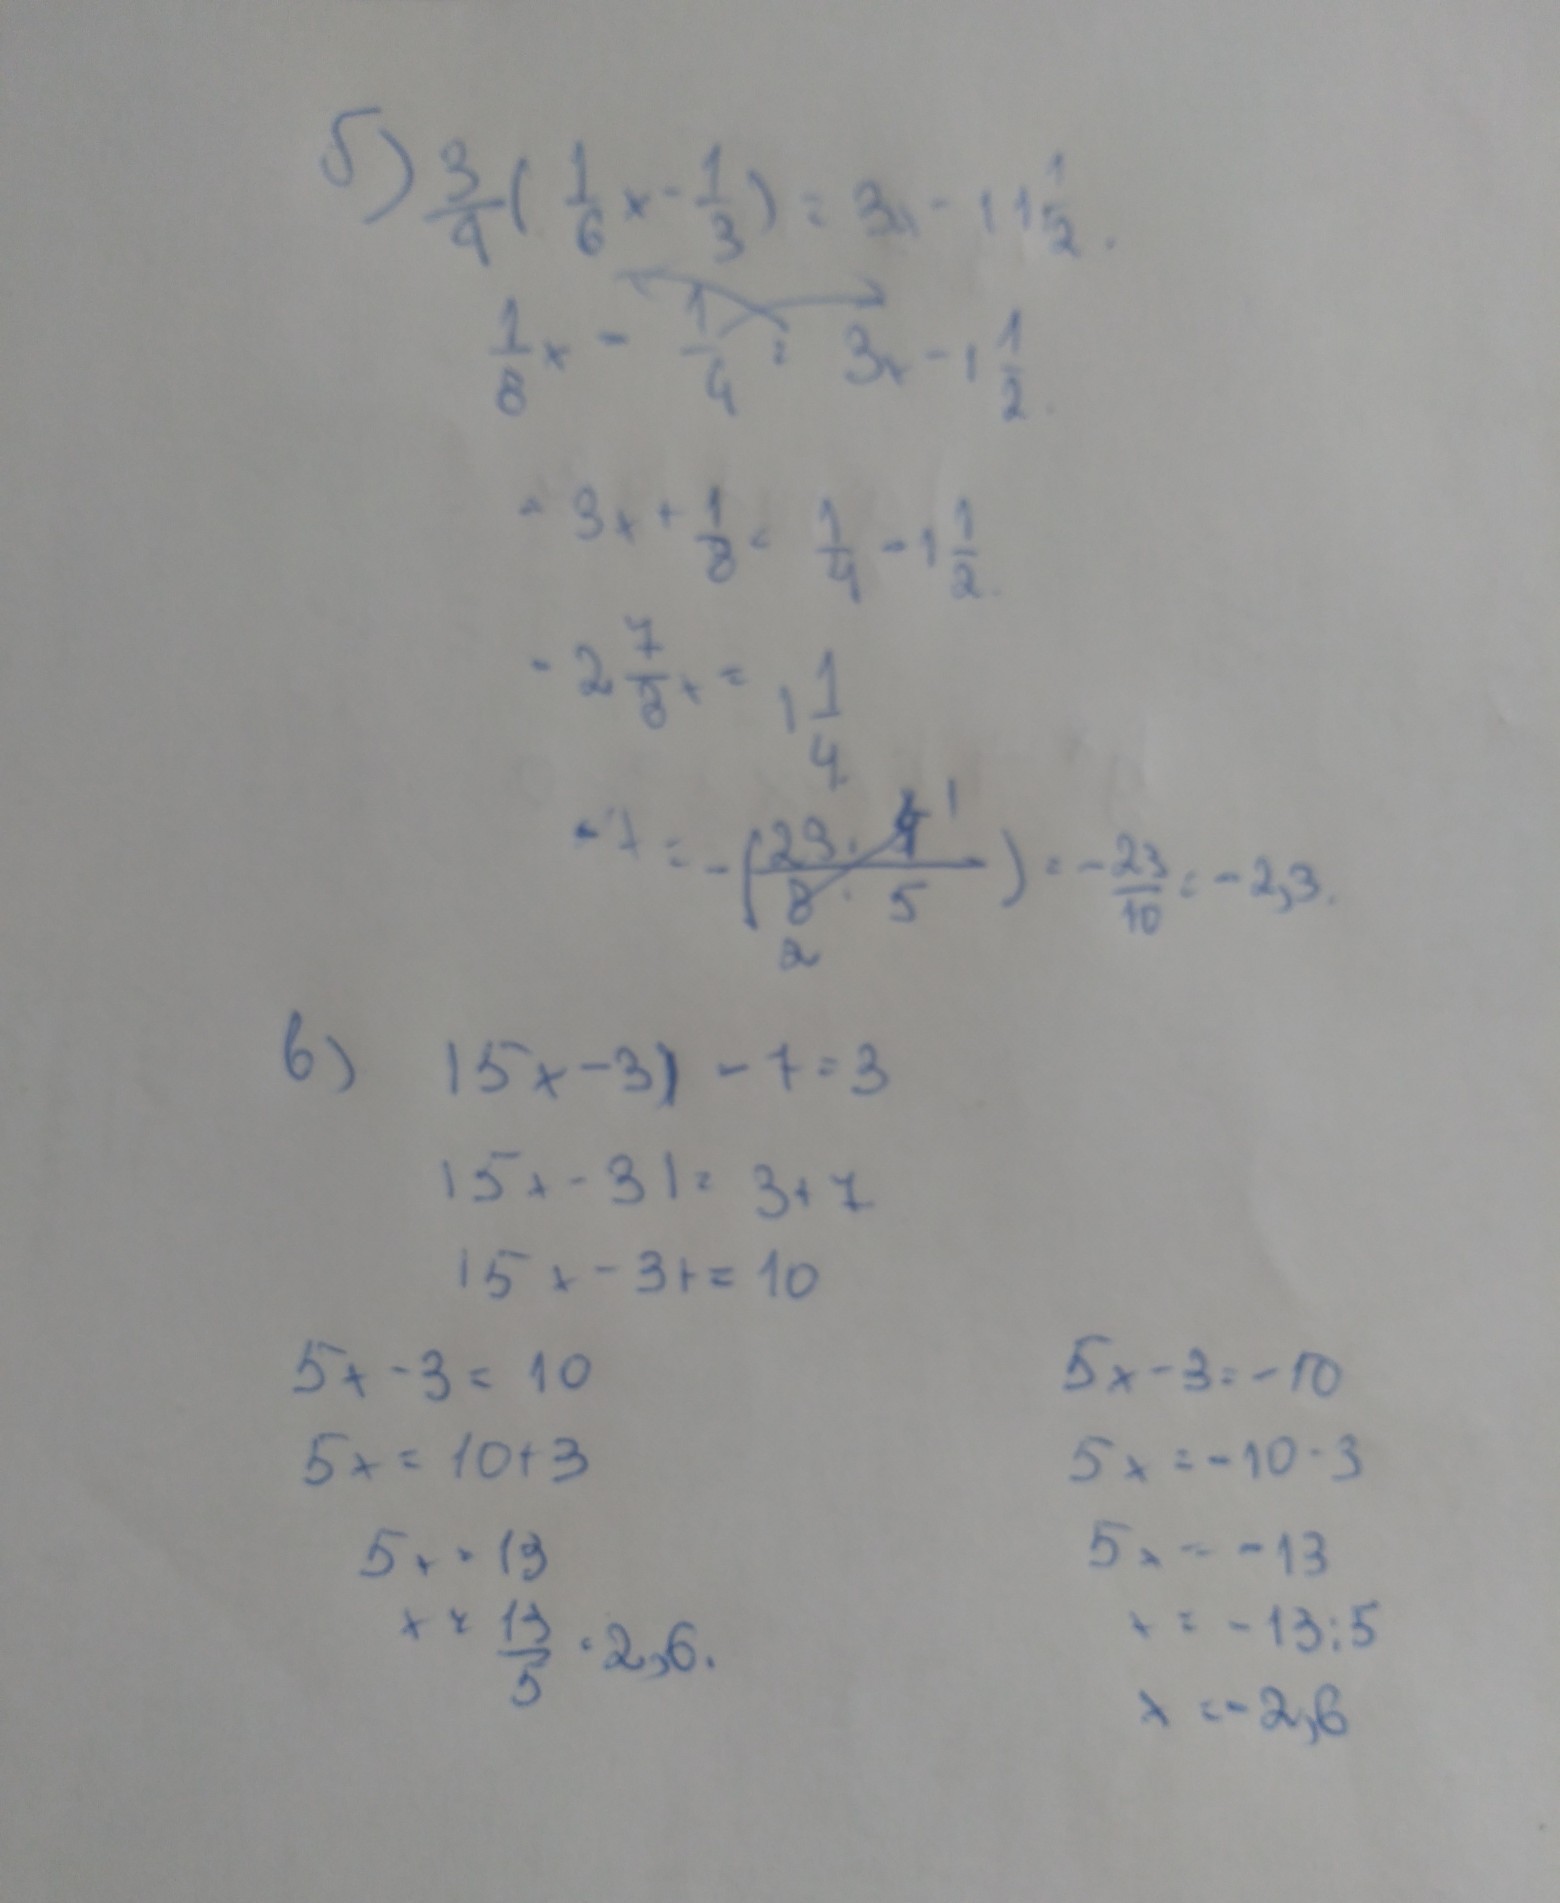 б) 3/4 ( 1/6 x - 1/3 ) = 3x - 11 1/2.
1/8 x - 1/4 = 3x - 1 1/2.
- 3x + 1/8 = 1/4 - 1 1/2.
- 2 7/8 x = 1 1/4
- x = - ( 23 · 4 1 / 8 · 5 2 ) = - 23/10 = - 2,3.
в) |5x - 3| - 7 = 3
|5x - 3| = 3 + 7
|5x - 3| = 10
5x - 3 = 10
5x = 10 + 3
5x = 13
x = 13/5 = 2,6.
5x - 3 = - 10
5x = - 10 - 3
5x = - 13
x = - 13 : 5
x = - 2,6